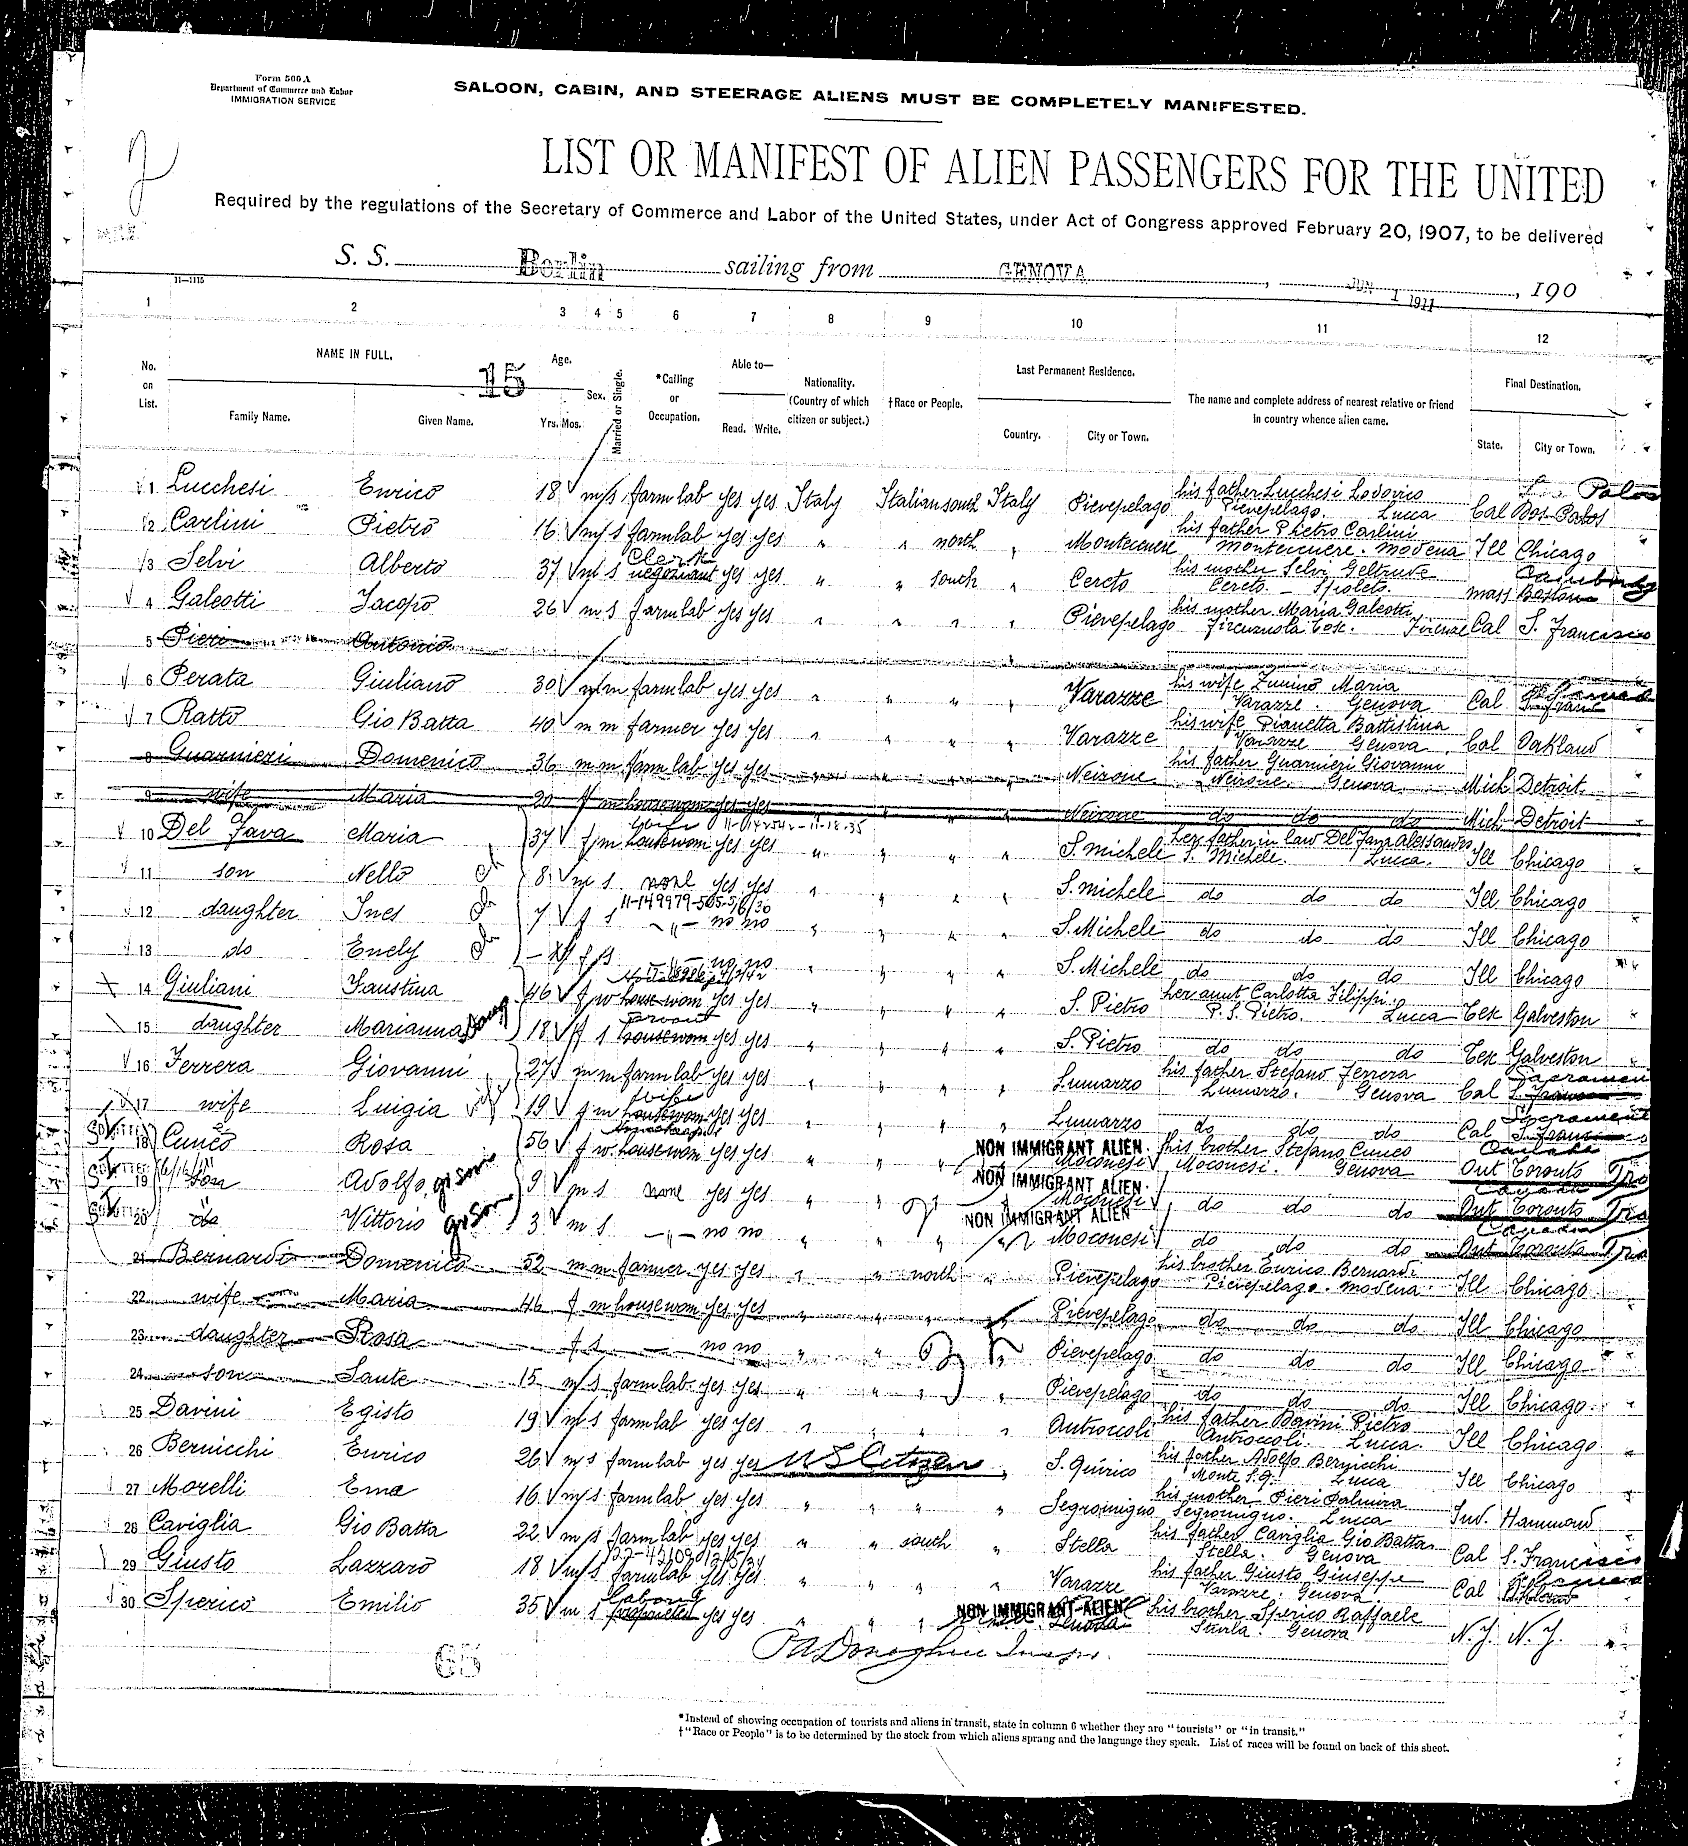 Form 500 A
Department of Commerce and Labor
IMMIGRATION SERVICE
SALOON, CABIN, AND STEERAGE ALIENS MUST BE COMPLETELY MANIFESTED.
LIST OR MANIFEST OF ALIEN PASSENGERS FOR THE UNITED
Required by the regulations of the Secretary of Commerce and Labor of the United States, under Act of Congress approved February 20, 1907, to be delivered
S. S. Berlin sailing from GENOVA, JUN 1 1911, 190
11-1115
1 2 3 4 5 6 7 8 9 10 11 12
No. on List.
NAME IN FULL.
Family Name. Given Name.
15
Age.
Yrs. Mos.
Sex.
Married or Single.
*Calling or Occupation.
Able to—
Read. Write.
Nationality. (Country of which citizen or subject.)
†Race or People.
Last Permanent Residence.
Country. City or Town.
The name and complete address of nearest relative or friend in country whence alien came.
Final Destination.
State. City or Town.
1 Lucchesi Enrico 18 m s farm lab yes yes Italy Italian south Italy Pievepelago his father Lucchesi Lodovico Pievepelago. Lucca Cal Dos Palos
2 Carlini Pietro 16 m s farm lab yes yes " " north " Montecuere his father Pietro Carlini Montecuere. Modena Ill Chicago
3 Selvi Alberto 37 m s Clerk negoziant yes yes " " south " Cereto his mother Selvi Geltrude Cereto. - Spoleto. Mass Boston
4 Galeotti Jacopo 26 m s farm lab yes yes " " " " Pievepelago his mother Maria Galeotti Firenzuola Tosc. Firenze Cal S. Francisco
5 Pieri Antonio
6 Perata Giuliano 30 m m farm lab yes yes " " " " Varazze his wife Zunino Maria Varazze. Genova Cal S. Franc
7 Ratto Gio Batta 40 m m farmer yes yes " " " " Varazze his wife Pianetta Battistina Varazze Genova Cal Oakland
8 Guarnieri Domenico 36 m m farm lab yes yes " " " " Neirone his father Guarnieri Giovanni Neirone. Genova. Mich Detroit
9 wife Maria 20 f m housewom yes yes " " Neirone do do do Mich Detroit
10 Del Fava Maria 37 f m wife housewom yes yes " " " " S. Michele her father in law Del Fava Alessandro S. Michele. Lucca. Ill Chicago
11 son Nello 8 m s none yes yes " " " " S. Michele do do do Ill Chicago
12 daughter Ines 7 f s no no " " " " S. Michele do do do Ill Chicago
13 do Enely f s no no " " " " S. Michele do do do Ill Chicago
14 Giuliani Faustina 46 f w housewom yes yes " " " " S. Pietro her aunt Carlotta Filippi P. S. Pietro. Lucca Tex Galveston
15 daughter Marianna 18 f s housewom yes yes " " " " S. Pietro do do do Tex Galveston
16 Ferrera Giovanni 27 m m farm lab yes yes " " " " Lumarzo his father Stefano Ferrera Lumarzo. Genova Cal S. Francisco
17 wife Luigia 19 f m wife housewom yes yes " " " " Lumarzo do do do Cal S. Franc Sacramento
18 Cuneo Rosa 56 f w housewom yes yes " " " NON IMMIGRANT ALIEN Moconesi his brother Stefano Cuneo Moconesi. Genova Ont Toronto
19 son Adolfo gr son 9 m s none yes yes " " " NON IMMIGRANT ALIEN Moconesi do do do Ont Toronto
20 do Vittorio gr son 3 m s no no " " " NON IMMIGRANT ALIEN Moconesi do do do Ont Toronto
21 Bernardi Domenico 52 m m farmer yes yes " " north " Pievepelago his brother Enrico Bernardi Pievepelago. Modena Ill Chicago
22 wife Maria 46 f m housewom yes yes " " " " Pievepelago do do do Ill Chicago
23 daughter Rosa f s no no " " " Pievepelago do do do Ill Chicago
24 son Sante 15 m s farm lab yes yes " " " " Pievepelago do do do Ill Chicago
25 Davini Egisto 19 m s farm lab yes yes " " " " Antroccoli his father Davini Pietro Antroccoli. Lucca Ill Chicago
26 Bernicchi Enrico 26 m s farm lab yes yes US Citizen " S. Quirico his father Adolfo Bernicchi Monte S.Q. Lucca Ill Chicago
27 Morelli Ema 16 m s farm lab yes yes " " " " Segromigno his mother Pieri Palmira Segromigno. Lucca Ind. Hammond
28 Caviglia Gio Batta 22 m s farm lab yes yes " " south " Stella his father Caviglia Gio Batta Stella. Genova Cal S. Francisco
29 Giusto Lazzaro 18 m s farm lab yes yes " " " " Varazze his father Giusto Giuseppe Varazze. Genova Cal
30 Sperico Emilio 35 m s Laborer yes yes " " " NON IMMIGRANT ALIEN Genova his brother Sperico Raffaele Sturla. Genova N.Y. N.Y.
65
PADonoghue Insp.
*Instead of showing occupation of tourists and aliens in transit, state in column 6 whether they are "tourists" or "in transit."
†"Race or People" is to be determined by the stock from which aliens sprang and the language they speak. List of races will be found on back of this sheet.